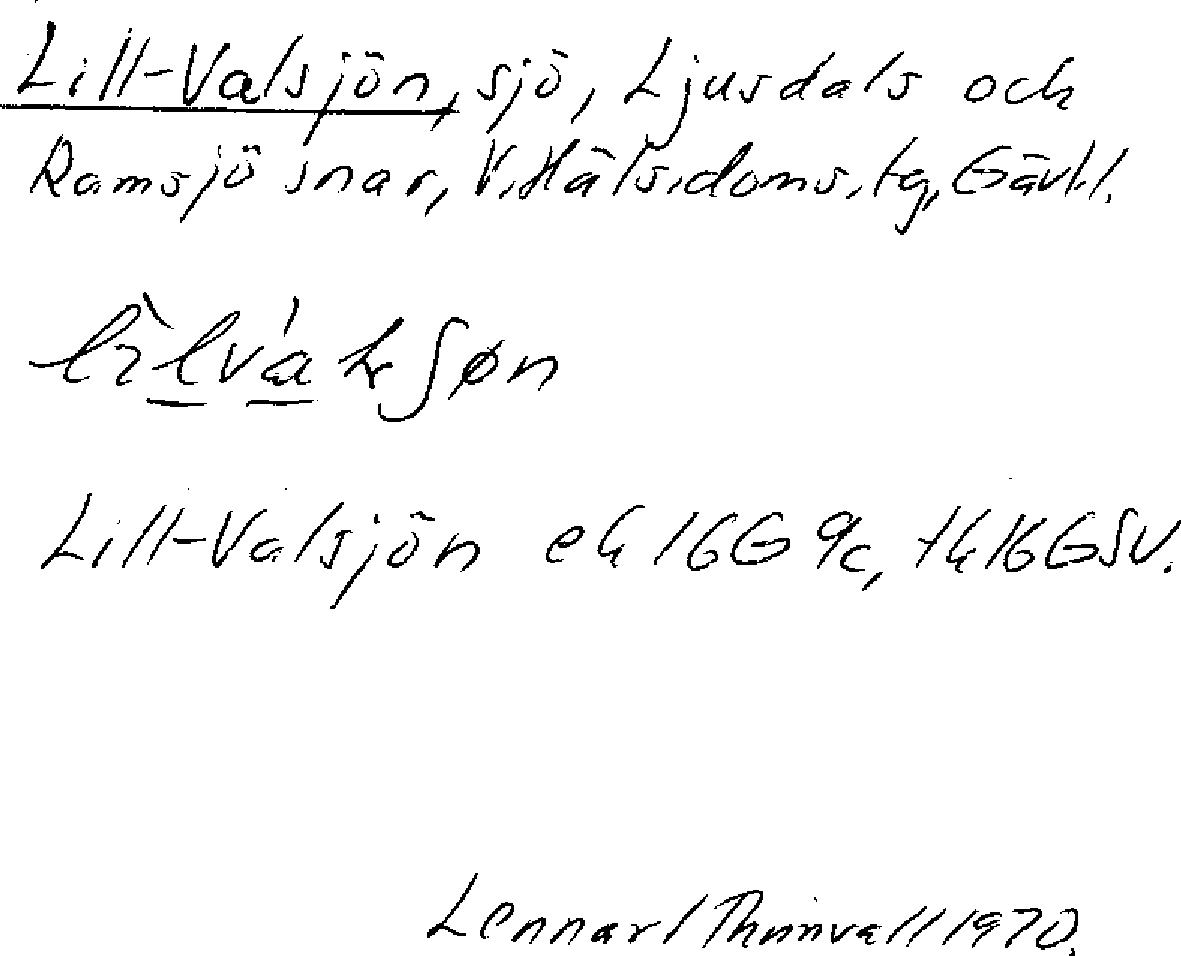 Lill-Valsjön, sjö, Ljusdals och
Ramsjö snar, V.Häls.doms.tg, Gävl.l.
Lill-Valsjön ek 16G 9c, tk 16GSV.
Lennart Thimvall 1970.